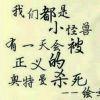 我们都是
小怪兽
有一天会被
正义的
奥特曼杀死